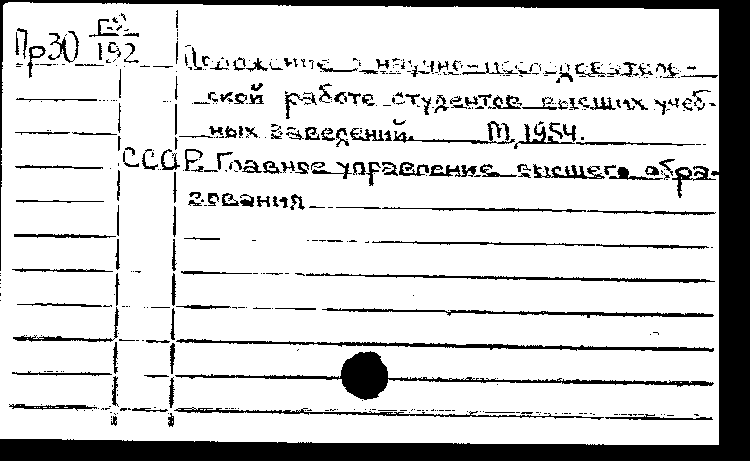 Пр30 Г-9/192
Положение о научно-исследователь-
ской работе студентов высших учеб-
ных заведений. М, 1954.
СССР. Главное управление высшего обра-
зования